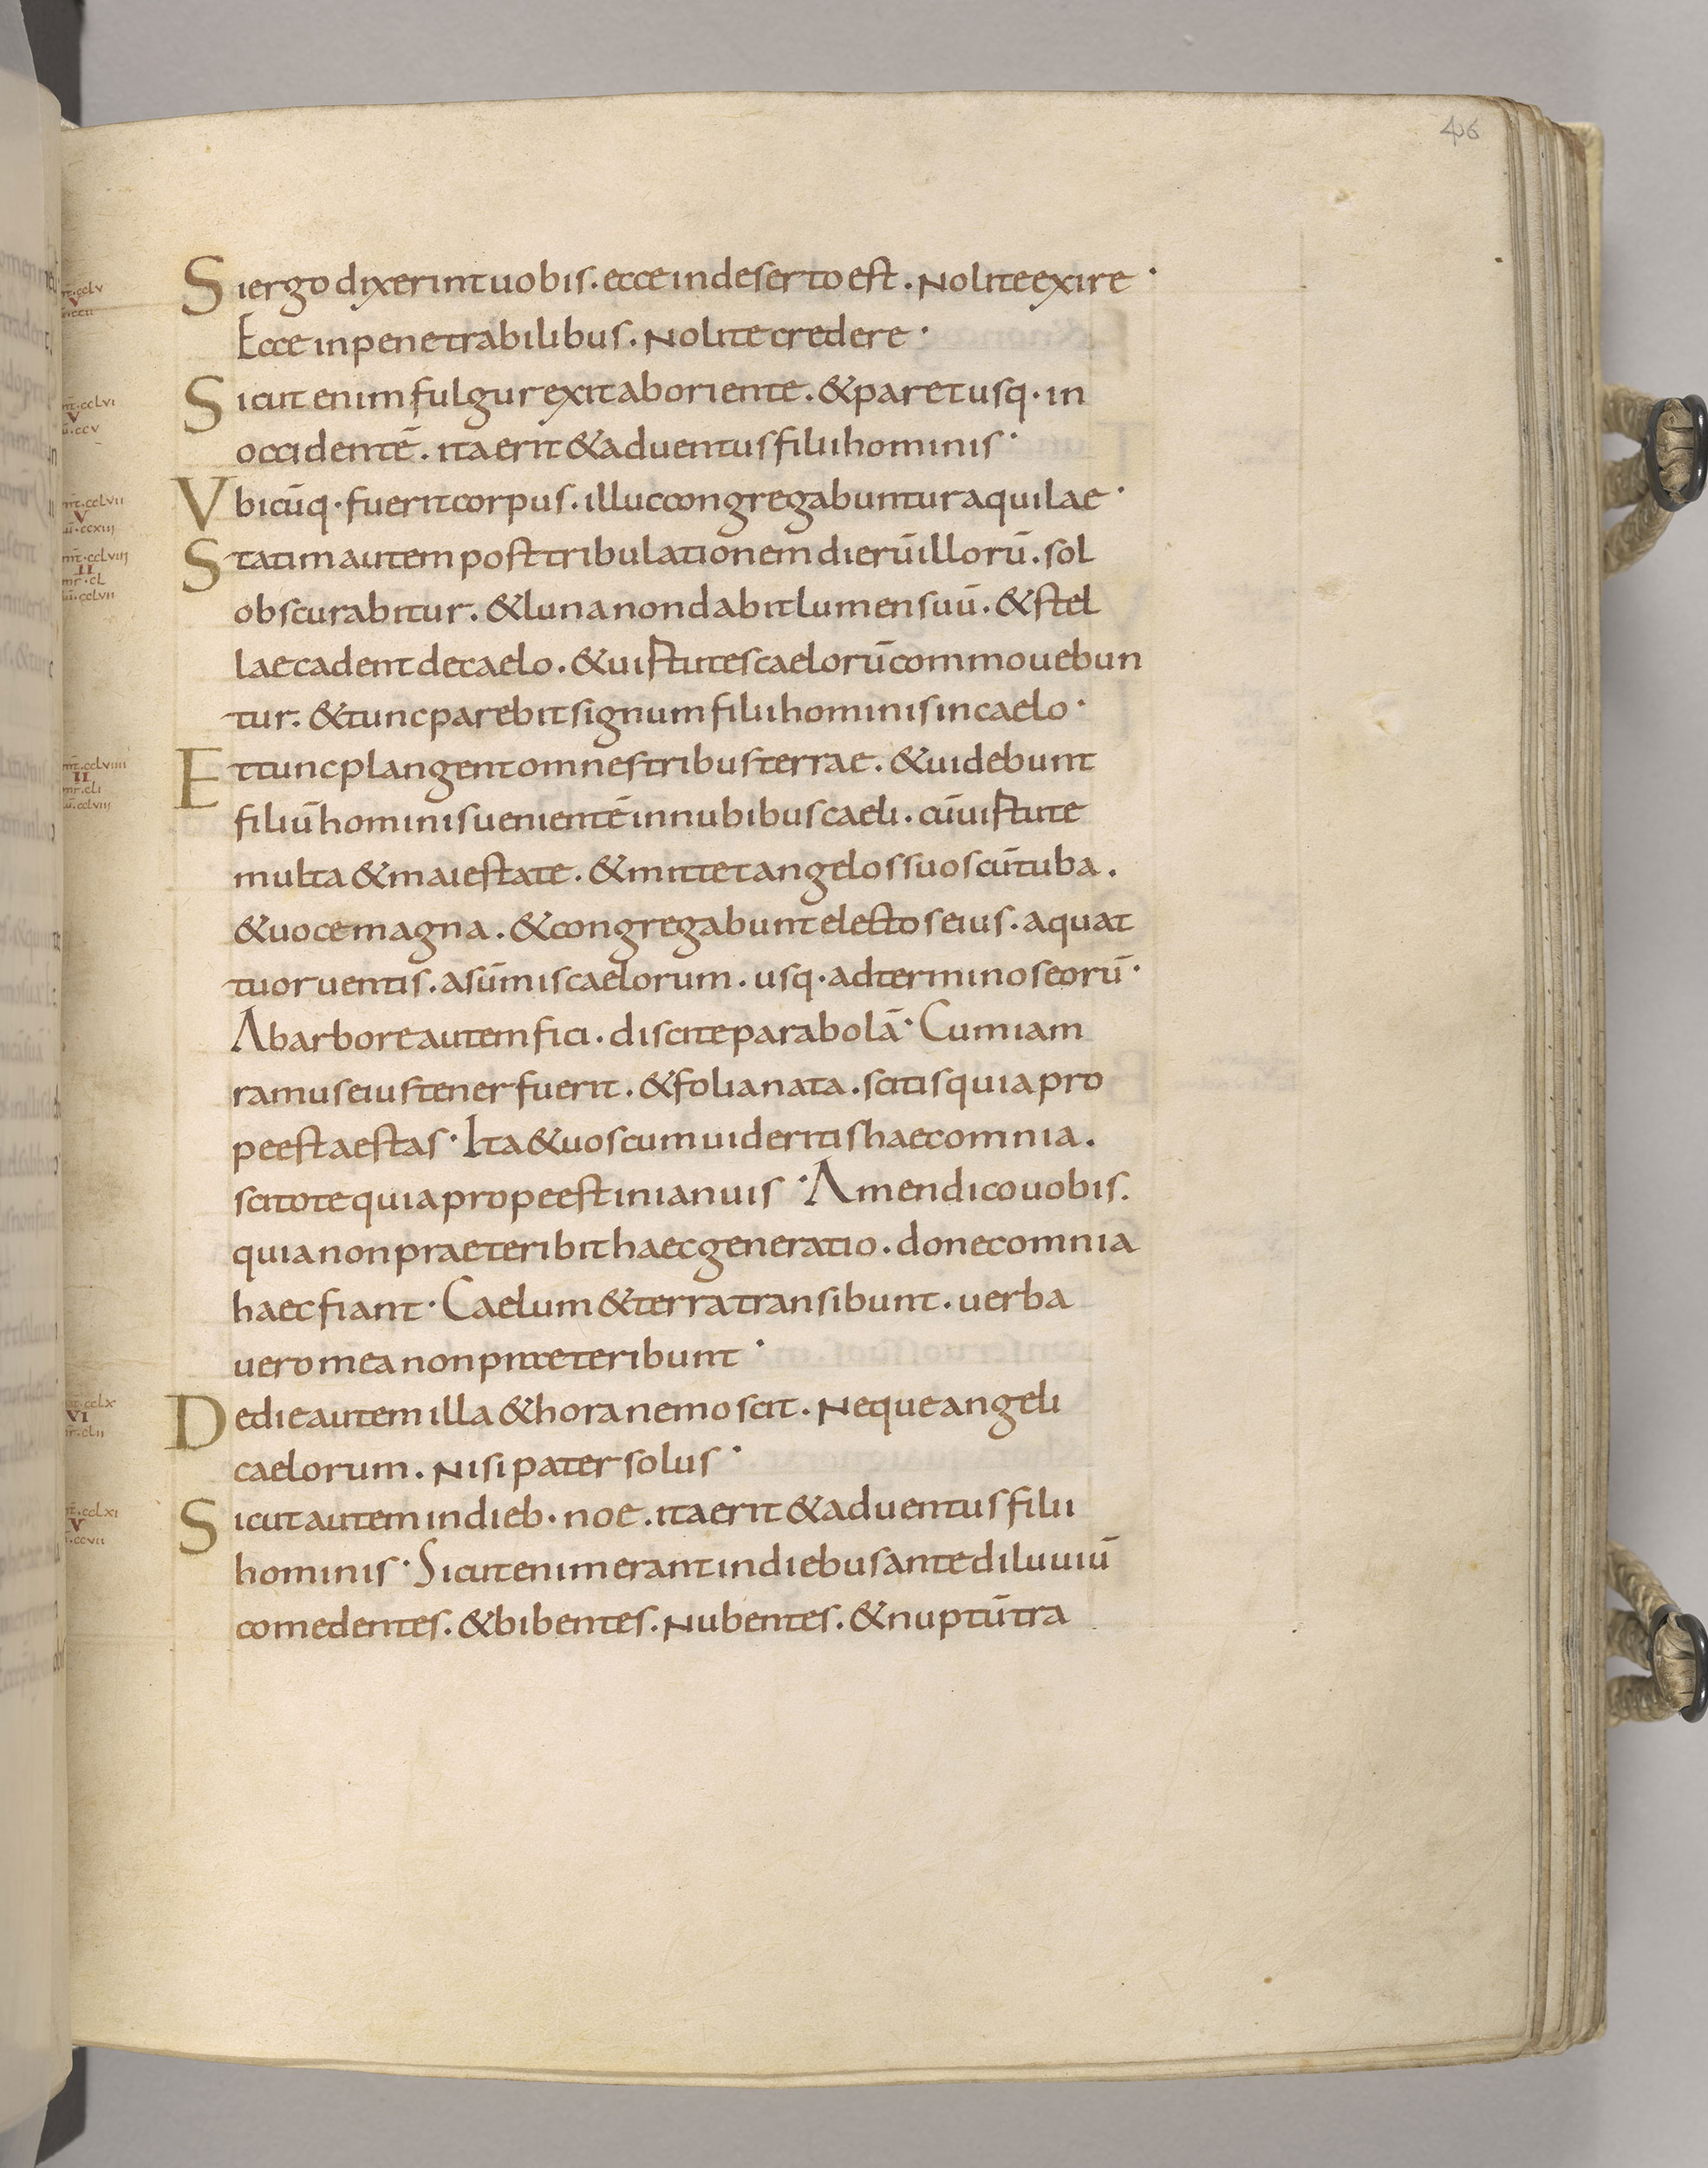 46
Siergo dixerint uobis. ecce indeserto est. Nolite exire ·
Ecce inpenetrabilibus. Nolite credere ·
Sicut enim fulgur exit aboriente. & paret usq· in
occidentē. ita erit & aduentus filii hominis ·
Vbicūq· fuerit corpus. illuc congregabuntur aquilae ·
Statim autem post tribulationem dierū illorū. sol
obscurabitur. & luna non dabit lumen suū. & stel
lae cadent decaelo. & uirtutes caelorū commouebun
tur. & tunc parebit signum filii hominis incaelo ·
Et tunc plangent omnes tribus terrae. & uidebunt
filiū hominis uenientē innubibus caeli. cū uirtute
multa & maiestate. & mittet angelos suos cū tuba.
& uoce magna. & congregabunt electos eius. aquat
tuor uentis. asūmis caelorum. usq· adterminos eorū ·
Abarbore autem fici. discite parabolā · Cum iam
ramus eius tener fuerit. & folia nata. scitis quia pro
pe est aestas · Ita & uos cum uideritis haec omnia.
scitote quia prope est inianuis · Amen dico uobis.
quia non praeteribit haec generatio. donec omnia
haec fiant · Caelum & terra transibunt. uerba
uero mea non praeteribunt ·
Dedie autem illa & hora nemo scit. Neque angeli
caelorum. Nisi pater solus ·
Sicut autem indieb· noe. ita erit & aduentus filii
hominis · Sicut enim erant indiebus ante diluuiū
comedentes. & bibentes. Nubentes. & nuptū tra
cclv
V
mt·cclvi
V
ccv
mt·cclvii
V
lu·ccxiii
mt·cclviii
II
mr·cl
lu·cclvii
mt·cclviiii
II
mr·cli
lu·cclviii
cclx
VI
mr·clii
cclxi
V
ccvii